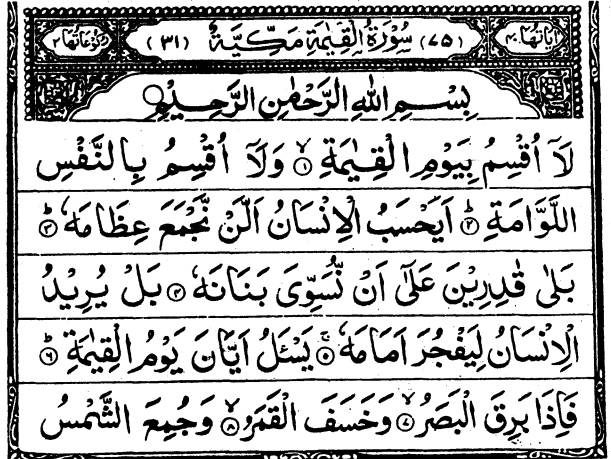 اٰیَاتُهَا ۴۰ (۷۵) سُوْرَةُ الْقِیٰمَةِ مَکِّیَّةٌ (۳۱) رُکُوْعَاتُهَا ۲
بِسْمِ اللّٰهِ الرَّحْمٰنِ الرَّحِیْمِ
لَاۤ اُقْسِمُ بِیَوْمِ الْقِیٰمَةِ ۙ﴿۱﴾ وَلَاۤ اُقْسِمُ بِالنَّفْسِ
اللَّوَّامَةِ ؕ﴿۲﴾ اَیَحْسَبُ الْاِنْسَانُ اَلَّنْ نَّجْمَعَ عِظَامَهٗ ؕ﴿۳﴾
بَلٰی قٰدِرِیْنَ عَلٰۤی اَنْ نُّسَوِّیَ بَنَانَهٗ ﴿۴﴾ بَلْ یُرِیْدُ
الْاِنْسَانُ لِیَفْجُرَ اَمَامَهٗ ۚ﴿۵﴾ یَسْـَٔلُ اَیَّانَ یَوْمُ الْقِیٰمَةِ ؕ﴿۶﴾
فَاِذَا بَرِقَ الْبَصَرُ ۙ﴿۷﴾ وَخَسَفَ الْقَمَرُ ۙ﴿۸﴾ وَجُمِعَ الشَّمْسُ